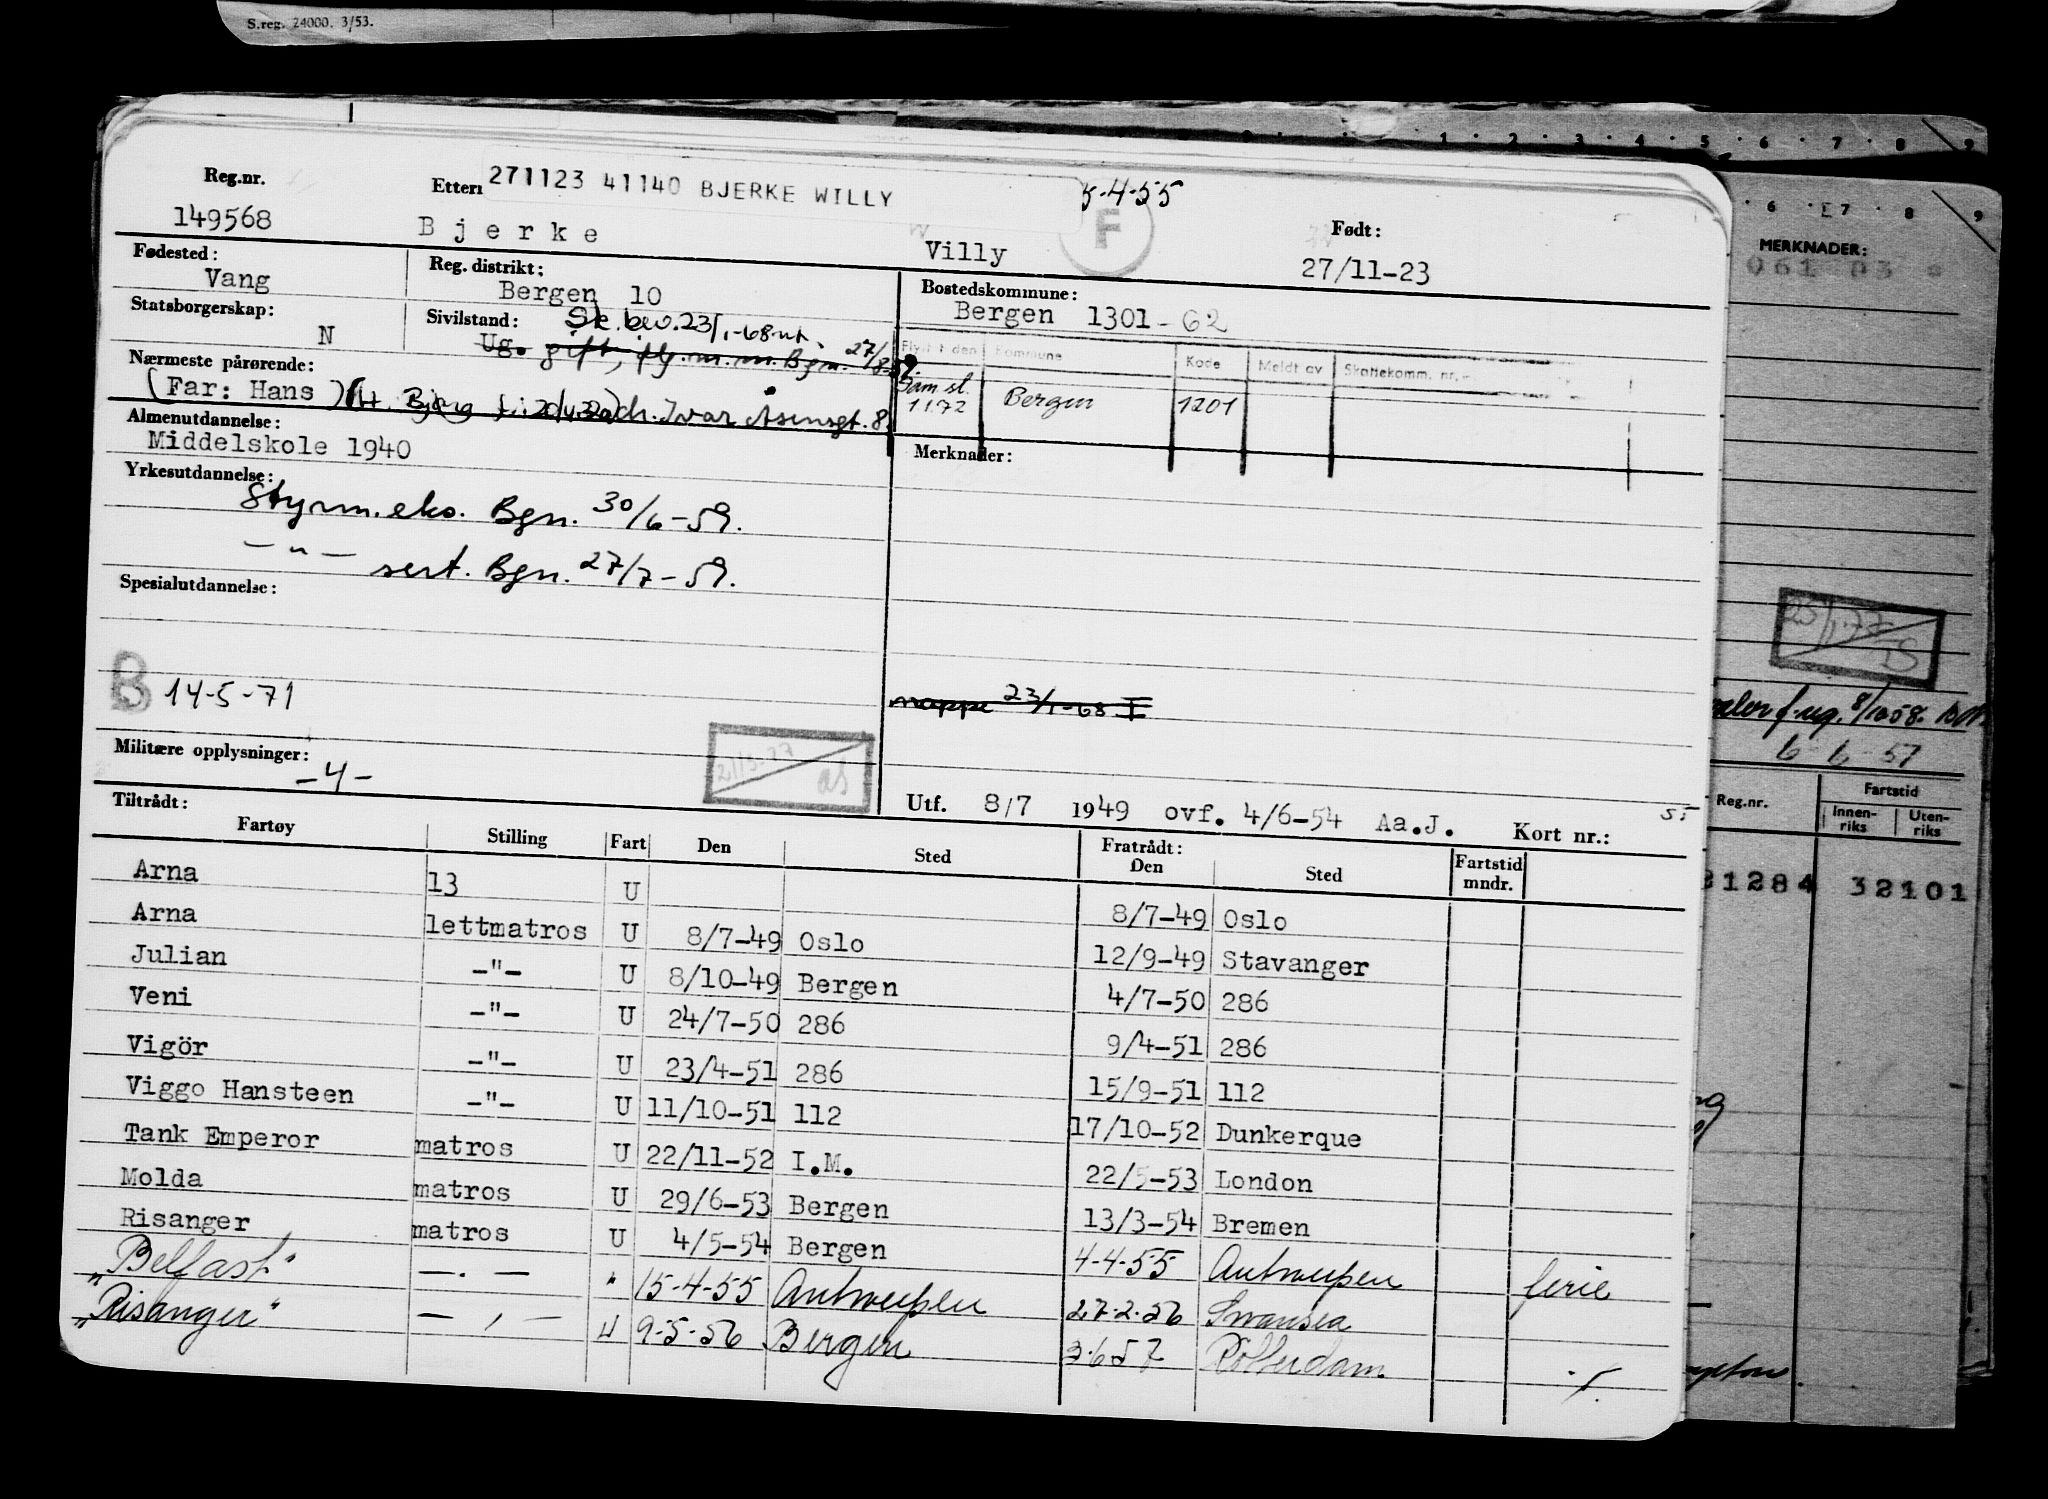 S.reg. 24000. 3/53.
Reg.nr. Ettern 271123 41140 BJERKE WILLY 5-4-55
149568 Bjerke Villy F Født:
27/11-23
Fødested: Vang
Reg. distrikt: Bergen 10
Bostedskommune: Bergen 1301-62
Statsborgerskap: N
Sivilstand: Ug. gift, flg. m. m. Bgn. 27/8-59.
Sk. bev. 23/1-68
Flyttet den Kommune Kode Meldt av Skattekomm. nr.
Sam st. 1172 Bergen 1201
Nærmeste pårørende:
(Far: Hans) Ivar Aasensgt. 8
Almenutdannelse:
Middelskole 1940
Merknader:
Yrkesutdannelse:
Styrm.eks. Bgn. 30/6-59.
-"- sert. Bgn. 27/7-59.
Spesialutdannelse:
B 14-5-71
mappe 23/1-68 I
Militære opplysninger:
-4-
Utf. 8/7 1949 ovf. 4/6-54 Aa.J. Kort nr.:
Tiltrådt: Fratrådt:
Fartøy Stilling Fart Den Sted Den Sted Fartstid mndr.
Arna 13 U 8/7-49 Oslo
Arna lettmatros U 8/7-49 Oslo 12/9-49 Stavanger
Julian -"- U 8/10-49 Bergen 4/7-50 286
Veni -"- U 24/7-50 286 9/4-51 286
Vigör -"- U 23/4-51 286 15/9-51 112
Viggo Hansteen -"- U 11/10-51 112 17/10-52 Dunkerque
Tank Emperor matros U 22/11-52 I.M. 22/5-53 London
Molda matros U 29/6-53 Bergen 13/3-54 Bremen
Risanger matros U 4/5-54 Bergen 4-4-55 Antwerpen ferie
„Belfast" -.- " 15-4-55 Antwerpen 27-2-56 Swansea
„Risanger" -,- U 9-5-56 Bergen 3-6-57 Rotterdam ./.
1 2 3 4 5 6 7 8 9
6 7 8 9
MERKNADER:
061 03
25/1-77
f. ug. 8/10 58.
6-6-57
Reg.nr. Fartstid
Innen-riks Uten-riks
31284 32101